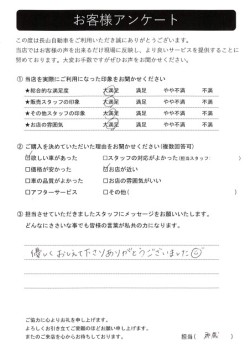 お客様アンケート
この度は長山自動車をご利用いただき誠にありがとうございます。
当店ではお客様の声を出来るだけ現場に反映し、より良いサービスを提供することに
努めております。大変お手数ですがぜひお声をお聞かせください。
① 当店を実際にご利用になった印象をお聞かせください
★総合的な満足度 大満足 満足 やや不満 不満
★販売スタッフの印象 大満足 満足 やや不満 不満
★その他スタッフの印象 大満足 満足 やや不満 不満
★お店の雰囲気 大満足 満足 やや不満 不満
② ご購入を決めていただいた理由をお聞かせください(複数回答可)
☑欲しい車があった □スタッフの対応がよかった(担当スタッフ: )
□価格が安かった ☑お店が近い
□車の品質がよかった □お店の雰囲気がいい
□アフターサービス □その他( )
③ 担当させていただきましたスタッフにメッセージをお願いいたします。
どんなにささいな事でも皆様の言葉が私共の力になります。
優しくおしえて下さりありがとうございました☺
ご協力に心よりお礼を申し上げます。
よろしくお引き立てご愛顧のほどお願い申し上げます。
またのご来店を心からお待ちしております。 担当( )